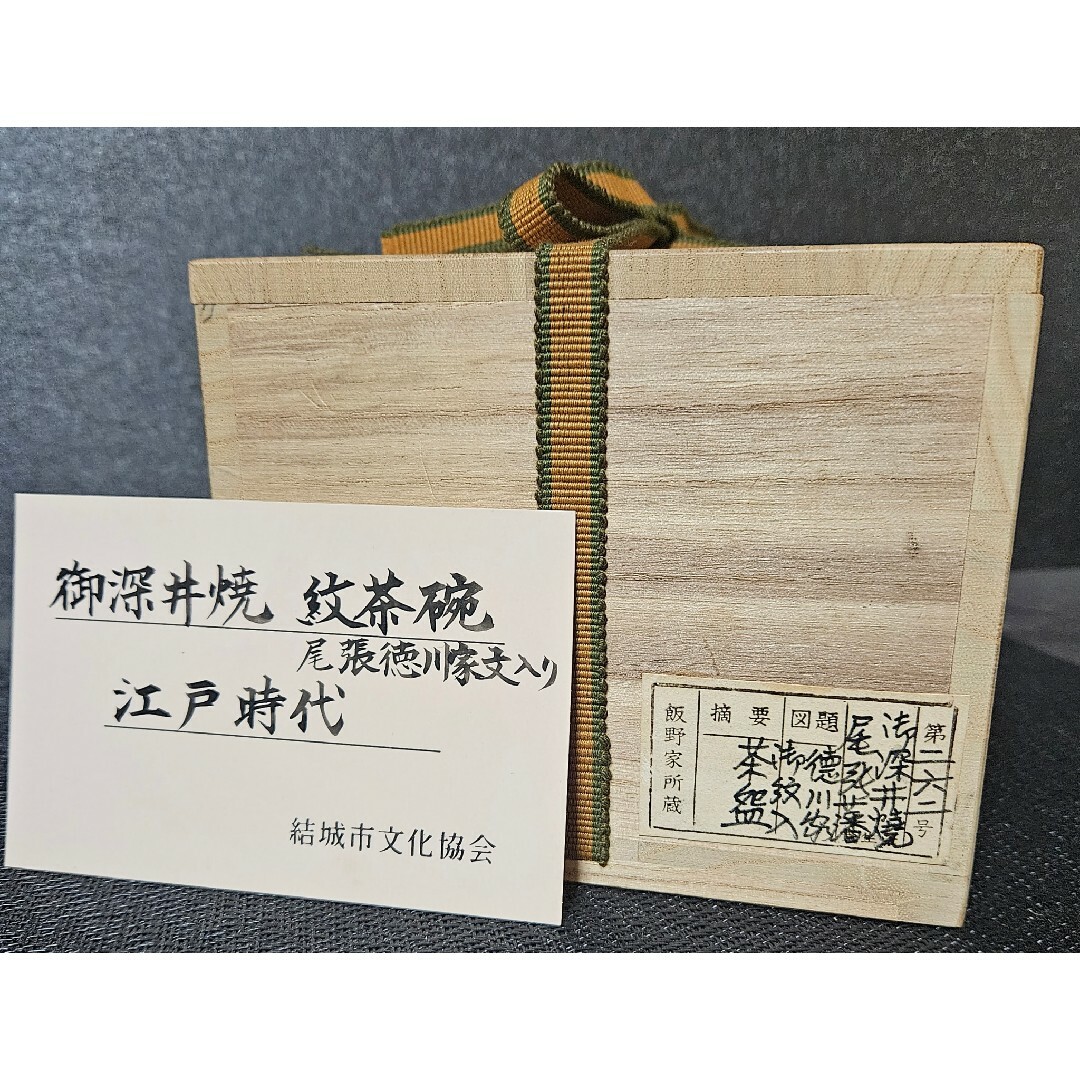 御深井焼 紋茶碗
尾張徳川家文入り
江戸時代
結城市文化協会
第二六二号
御深井焼
尾張藩
図題
徳川家
御紋入
摘要
茶盌
飯野家所蔵